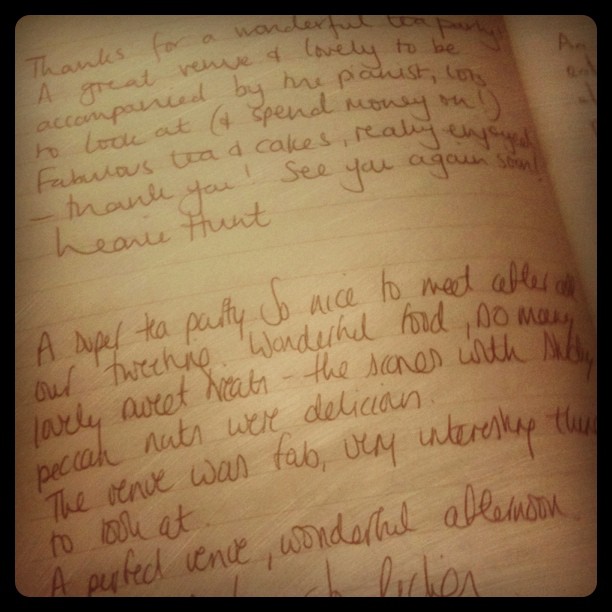 Thanks for a wonderful tea party!
A great venue & lovely to be
accompanied by the pianist, lots
to look at (& spend money on!)
Fabulous tea & cakes, really enjoyed
– thank you! See you again soon!
Leanie Hunt
A super tea party So nice to meet after all
our tweeting. Wonderful food, so many
lovely sweet treats – the scones with
peccan nuts were delicious.
The venue was fab, very interesting
to look at.
A perfect venue, wonderful afternoon
An